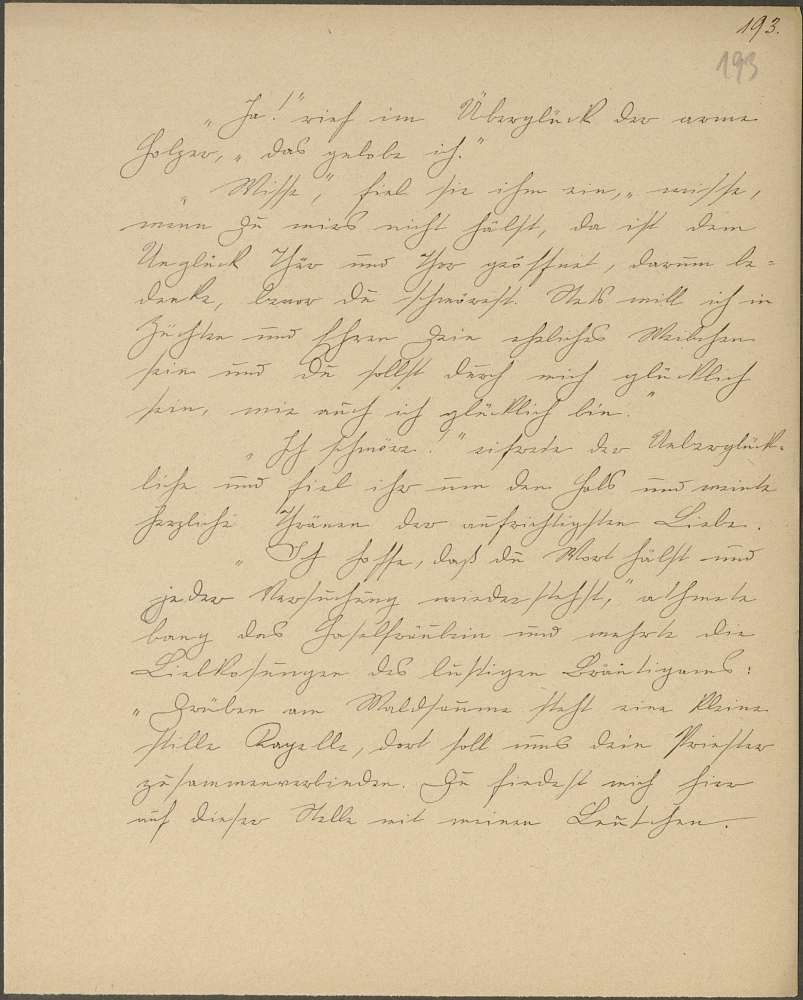 193.
193
„Ja!" rief im Überglück der arme
Holger, „das gelobe ich."
„Wisse", fiel sie ihm ein, „wisse,
wenn Du mirs nicht hälst, da ist dem
Unglück Thür und Thor geöffnet, darum be=
denke, bevor Du schwörest. Stets will ich in
Züchten und Ehren Dein eheliches Weibchen
sein und Du sollst durch mich glücklich
sein, wie auch ich glücklich bin."
„Ich schwöre!" eiferte der Ueberglück=
liche und fiel ihr um den Hals und weinte
herzliche Thränen der aufrichtigsten Liebe.
„Ich hoffe, daß du Wort hälst und
jeder Versuchung wiederstehst," athmete
bang das Haselfräulein und wehrte die
Liebkosungen des lustigen Bräutigams:
„Drüben am Waldsaume steht eine kleine
stille Kapelle, dort soll uns dein Priester
zusammenverbinden. Du findest mich hier
auf dieser Stelle mit meinen Leutchen.